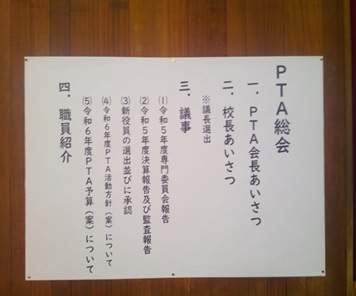 PTA総会
一．PTA会長あいさつ
二．校長あいさつ
※議長選出
三．議事
⑴令和５年度専門委員会報告
⑵令和５年度決算報告及び監査報告
③新役員の選出並びに承認
⑷令和６年度PTA活動方針（案）について
⑤令和６年度PTA予算（案）について
四．職員紹介